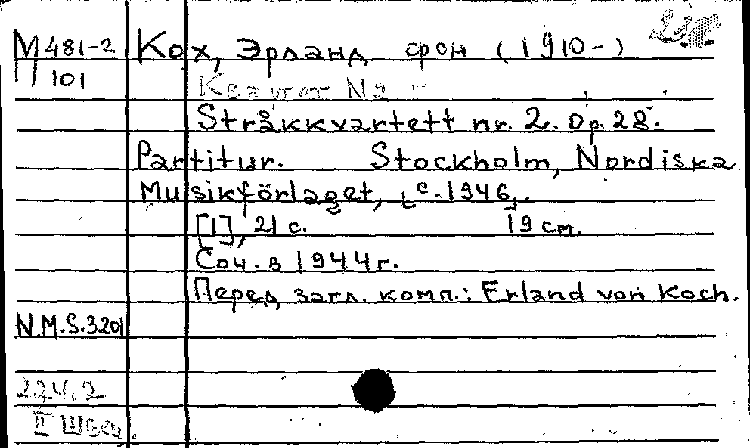 М 481-2 Кох, Эрланд фон (1910-)
П 101
Stråkkvartett nr. 2. Op. 28.
Partitur. Stockholm, Nordiska
Musikförlaget, c. 1946.
[1], 21 с. 19 см.
Соч. в 1944 г.
Перед загл. комп.: Erland von Koch.
N.M.S.3201
224.2
II Швец.